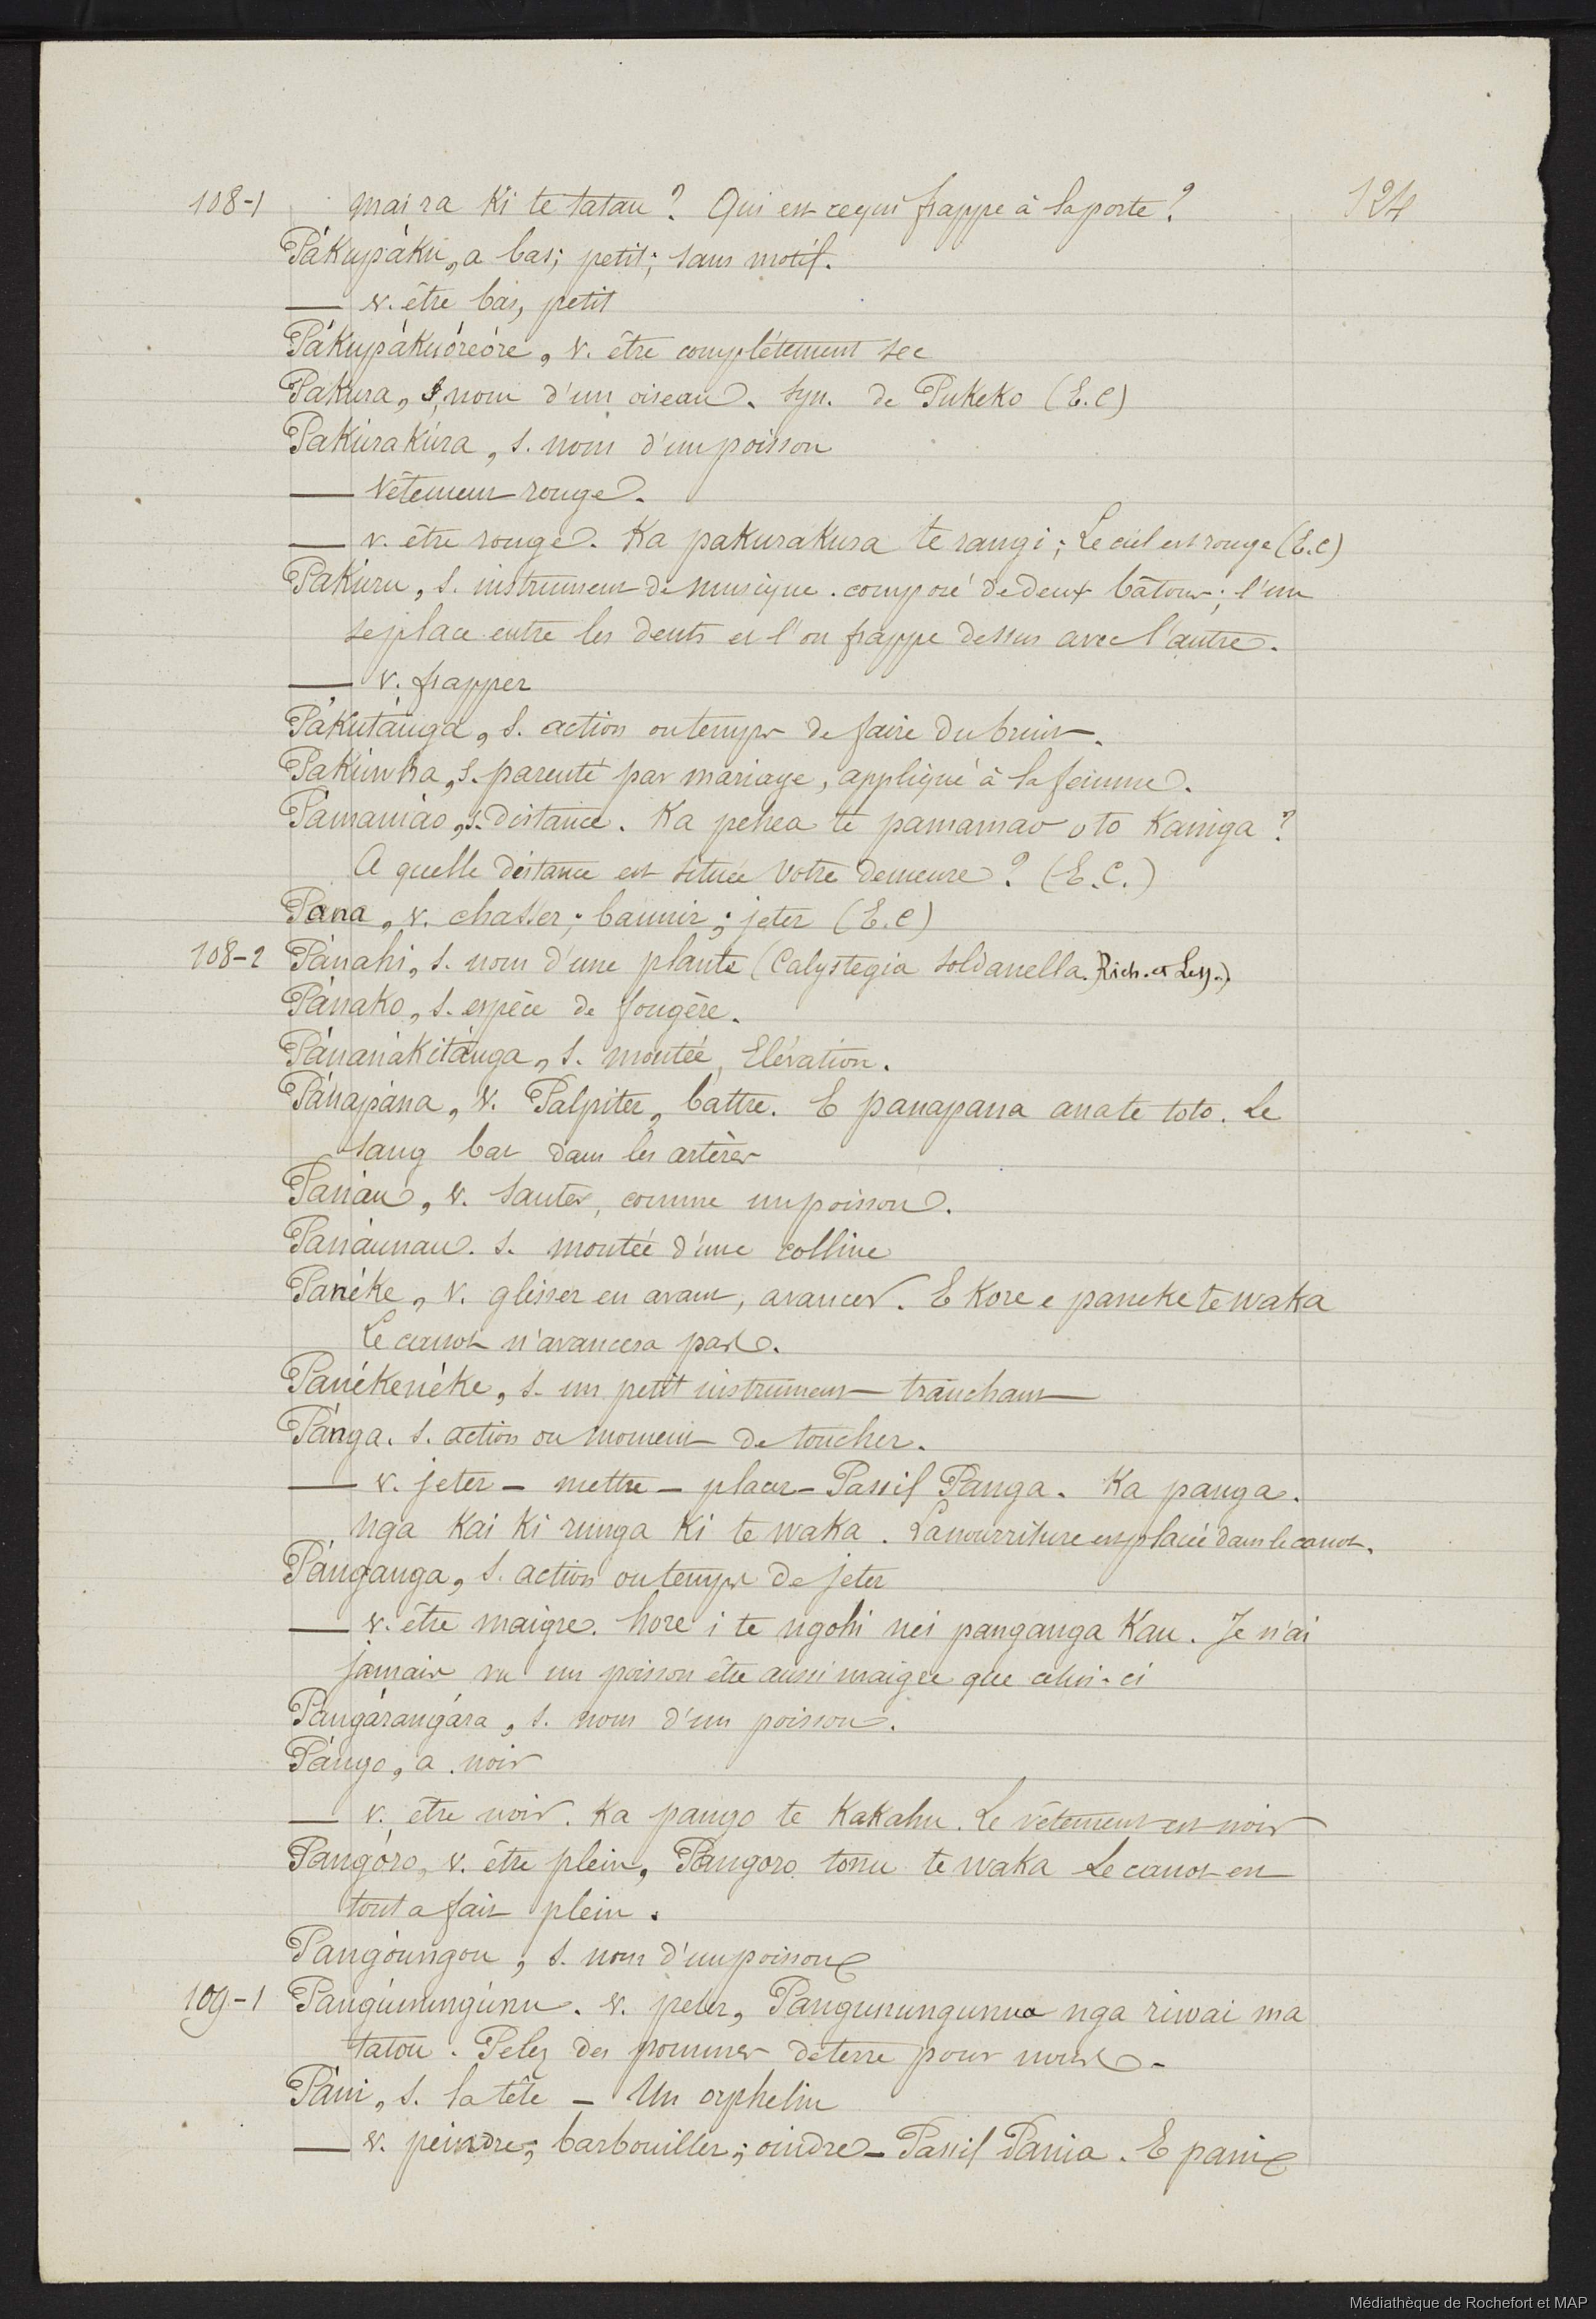 108-1 mai ra ki te tatau ? Qui est ce qui frappe à la porte ? 124
Pákupáku, a bas; petit; sans motif.
— v. être bas, petit
Pákupákuóreóre, v. être complétement sec
Pakura, s. nom d'un oiseau. Syn. de Pukeko (E.C)
Pakúrakúra, s. nom d'un poisson
— Vêtement rouge.
— v. être rouge. Ka pakurakura te rangi; Le ciel est rouge (E.C)
Pakúru, s. instrument de musique. composé de deux bâtons; l'un
se place entre les dents et l'on frappe dessus avec l'autre.
— v. frapper
Pákutánga, s. action ou temps de faire du bruit.
Pakúwha, s. parenté par mariage, appliqué à la femme.
Pámamáo, s. distance. Ka pehea te pamamao o to Kainga ?
A quelle distance est située votre demeure ? (E.C.)
Pana, v. chasser; bannir; jeter (E.C)
108-2 Pánahi, s. nom d'une plante (Calystegia soldanella. Rich. et Less.)
Pánako, s. espèce de fougère.
Pánanákitánga, s. montée, Elévation.
Pánapána, v. Palpiter, battre. E panapana ana te toto. Le
sang bat dans les artères
Panáu, v. Sauter, comme un poisson.
Panáunau. s. montée d'une colline
Panéke, v. glisser en avant, avancer. E Kore e paneke te waka
Le canot n'avancera pas.
Panékenéke, s. un petit instrument tranchant
Pánga. s. action ou moment de toucher.
— v. jeter - mettre - placer - Passif Panga. Ka panga.
nga Kai Ki runga Ki te waka. La nourriture est placée dans le canot.
Pánganga, s. action ou temps de jeter
— v. être maigre. hore i te ngohi nei panganga Kau. Je n'ai
jamais vu un poisson être aussi maigre que celui-ci
Pángárangára, s. nom d'un poisson.
Pángo, a. noir
— v. être noir. Ka pango te Kakahu. Le vêtement est noir
Pangóro, v. être plein, Pangoro tonu te waka Le canot est
tout a fait plein.
Pangóungou, s. nom d'un poisson
109-1 Pangúnungúnu. v. peler, Pangunungunua nga riwai ma
tatou. Pelez des pommes de terre pour nous -
Páni, s. la tête - Un orphelin
— v. peindre; barbouiller; oindre - Passif Pania. E pani
Médiathèque de Rochefort et MAP